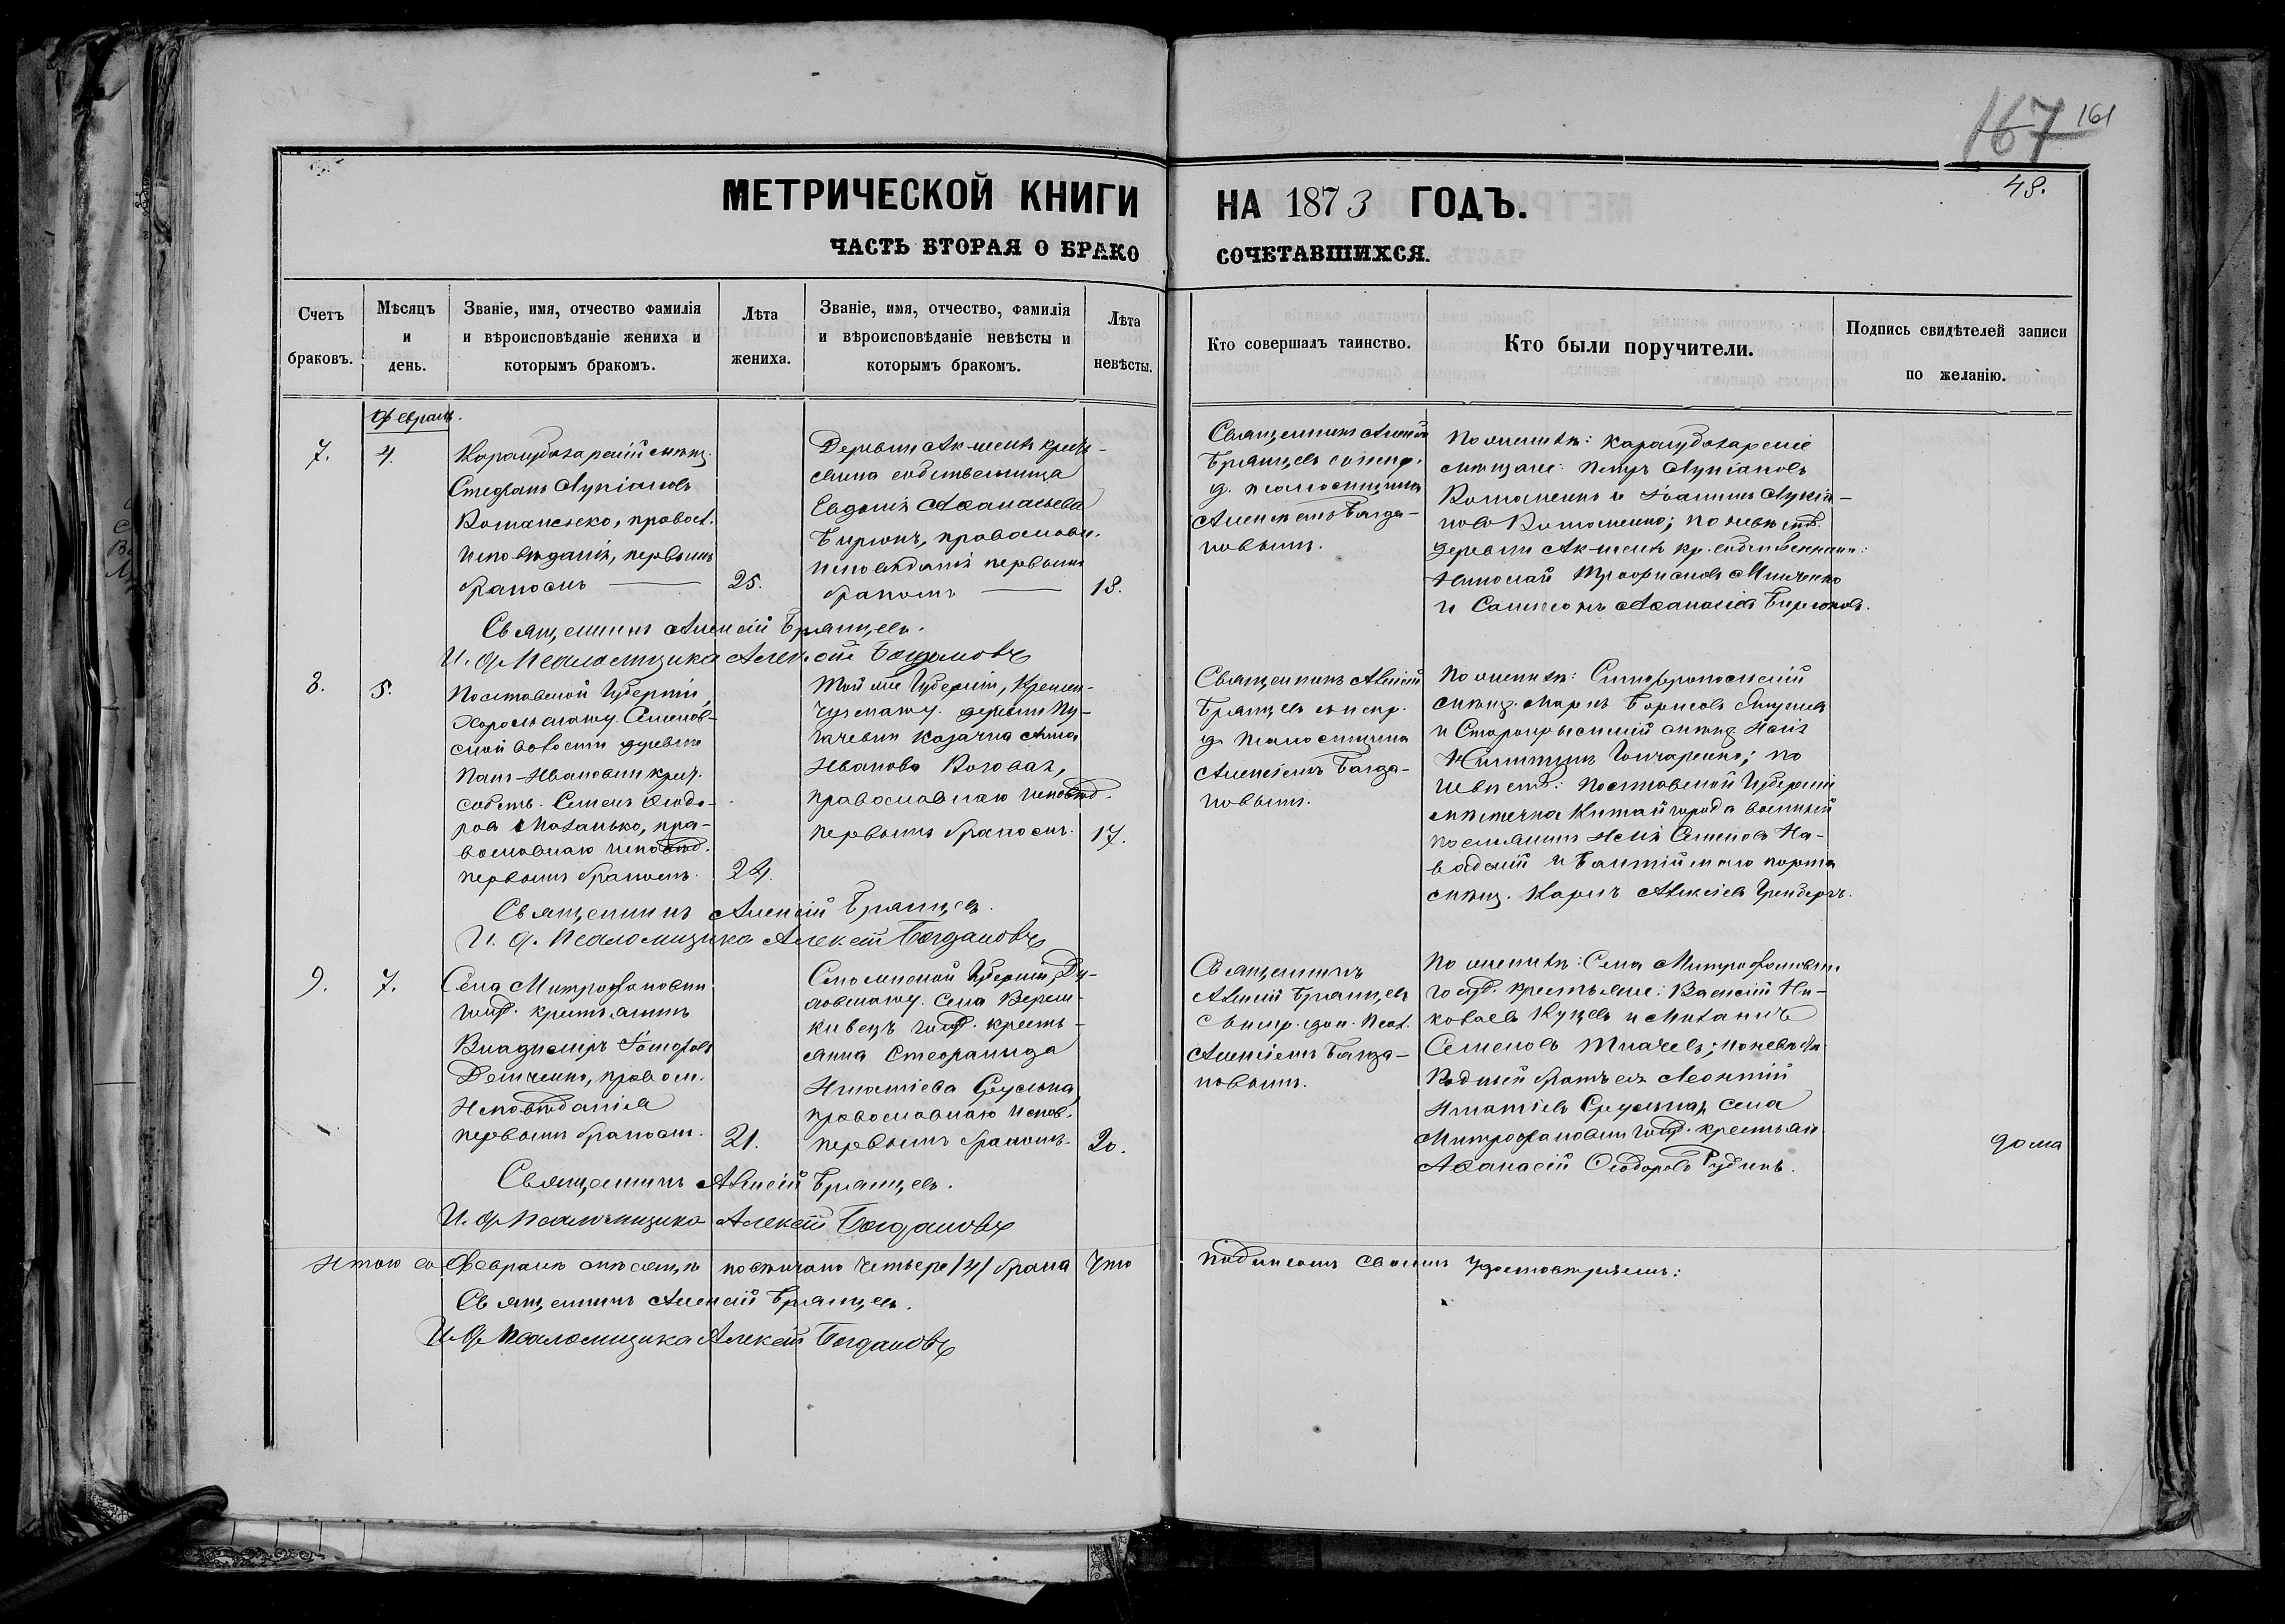 167 161
48.
МЕТРИЧЕСКОЙ КНИГИ НА 1873 ГОДЪ.
ЧАСТЬ ВТОРАЯ О БРАКОСОЧЕТАВШИХСЯ.
Счетъ браковъ.
Мѣсяцъ и день.
Званіе, имя, отчество фамилія
и вѣроисповѣданіе жениха и
которымъ бракомъ.
Лѣта жениха.
Званіе, имя, отчество, фамилія
и вѣроисповѣданіе невѣсты и
которымъ бракомъ.
Лѣта невѣсты.
Кто совершалъ таинство.
Кто были поручители.
Подпись свидѣтелей записи
по желанію.
Февраль.
7.
4.
Карасубазарскій мѣщ.
Стефанъ Лукіановъ
правос.
исповѣданія, первымъ
бракомъ
25.
Деревни Ак-шеихъ крест-
янка собственница
Евдокія Аѳанасьева
Бирюкъ, православн.
исповѣданія первымъ
бракомъ
18.
Священникъ Алексѣй
Брянцевъ съ испр.
д. псаломщика
Алексѣемъ Богда-
новымъ.
По женихѣ: карасубазарскіе
мѣщане: Петръ Лукіановъ
и Іоаннъ Лукіа-
новъ по невѣстѣ
деревни Ак-шеихъ кр. собственники:
Николай Трофимовъ
и Самсонъ Аѳанасіевъ Бирюковъ.
Священникъ Алексій Брянцевъ.
И. д. Псаломщика Алексѣй Богдановъ
8.
5.
Полтавской Губерніи,
Хорольскаго у. Семенов-
ской волости деревни
Пан-Ивановки крест.
собств. Семенъ Ѳеодо-
ровъ Маханько, пра-
вославнаго исповѣд.
первымъ бракомъ.
24.
Той же Губерніи, Кремен-
чугскаго у. деревни Пу-
гачевки козачка Анна
Иванова Коговая,
православнаго исповѣд.
первымъ бракомъ.
17.
Священникъ Алексій
Брянцевъ съ испр.
д. псаломщика
Алексіемъ Богда-
новымъ.
По женихѣ: Симферопольскій
мѣщ. Маркъ Борисовъ
и Старокрымскій мѣщ. Илія
Никитинъ Гончаренко; по
невѣстѣ: Полтавской Губерніи
мѣстечка Китайгорода военный
поселянинъ Илія Семеновъ На-
вадскій и Балтійскаго порта
мѣщ. Карлъ Алексіевъ Гренбергъ.
Священникъ Алексій Брянцевъ.
И. д. Псаломщика Алексѣй Богдановъ
9.
7.
Села Митрофановки
госуд. крестьянинъ
Владиміръ
Демченко, правосл.
Исповѣданія
первымъ бракомъ.
21.
Смоленской Губерніи, Ду-
ховскаго у. села
госуд. кресть-
янка Стефанида
Игнатіева
православнаго исповѣд.
первымъ бракомъ.
20.
Священникъ
Алексій Брянцевъ
съ испр. дол. псал.
Алексіемъ Богда-
новымъ.
По женихѣ: Села Митрофановки
госуд. крестьяне: Василій Ни-
колаевъ Купцевъ и Михаилъ
Семеновъ Ткачевъ; по невѣстѣ
Родный братъ ея Леонтій
Игнатіевъ села
Митрофановки госуд. крестьян.
Аѳанасій Ѳеодоровъ Рудикъ.
дома
Священникъ Алексій Брянцевъ.
И. д. Псаломщика Алексѣй Богдановъ
Итого въ Февралѣ мѣсяцѣ повѣнчано четыре /4/ брака что подписомъ своимъ удостовѣряемъ:
Священникъ Алексій Брянцевъ.
И. д. Псаломщика Алексѣй Богдановъ